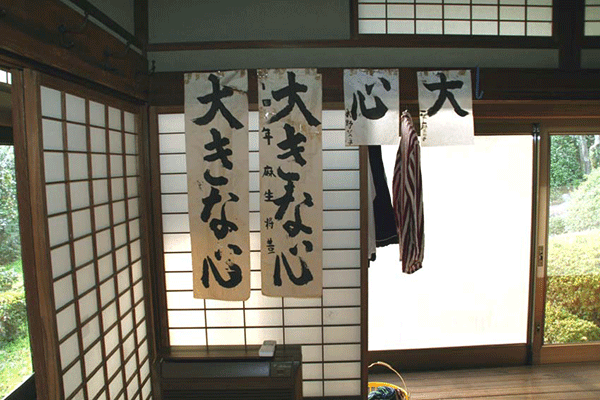 大
心
大きな心
四年 麻生将豊
大きな心